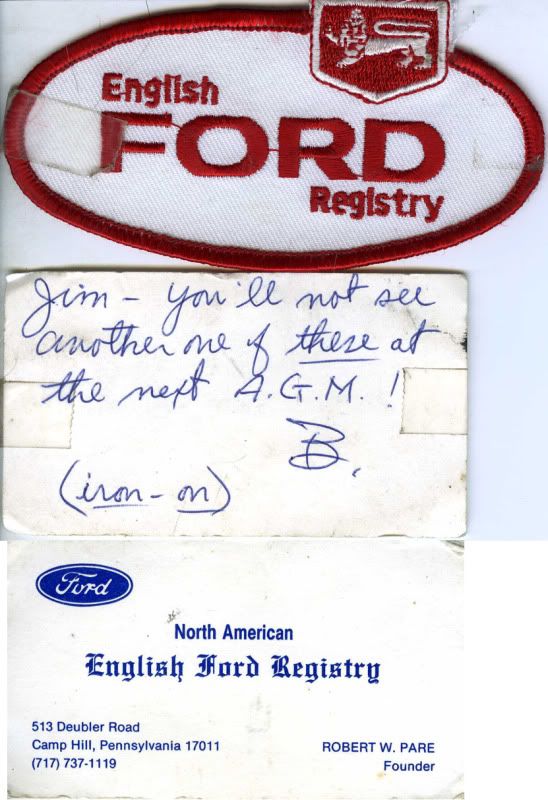 English
FORD
Registry
Jim – you'll not see
another one of these at
the next A.G.M. !
B.
(iron-on)
Ford
North American
English Ford Registry
513 Deubler Road
Camp Hill, Pennsylvania 17011
(717) 737-1119
ROBERT W. PARE
Founder